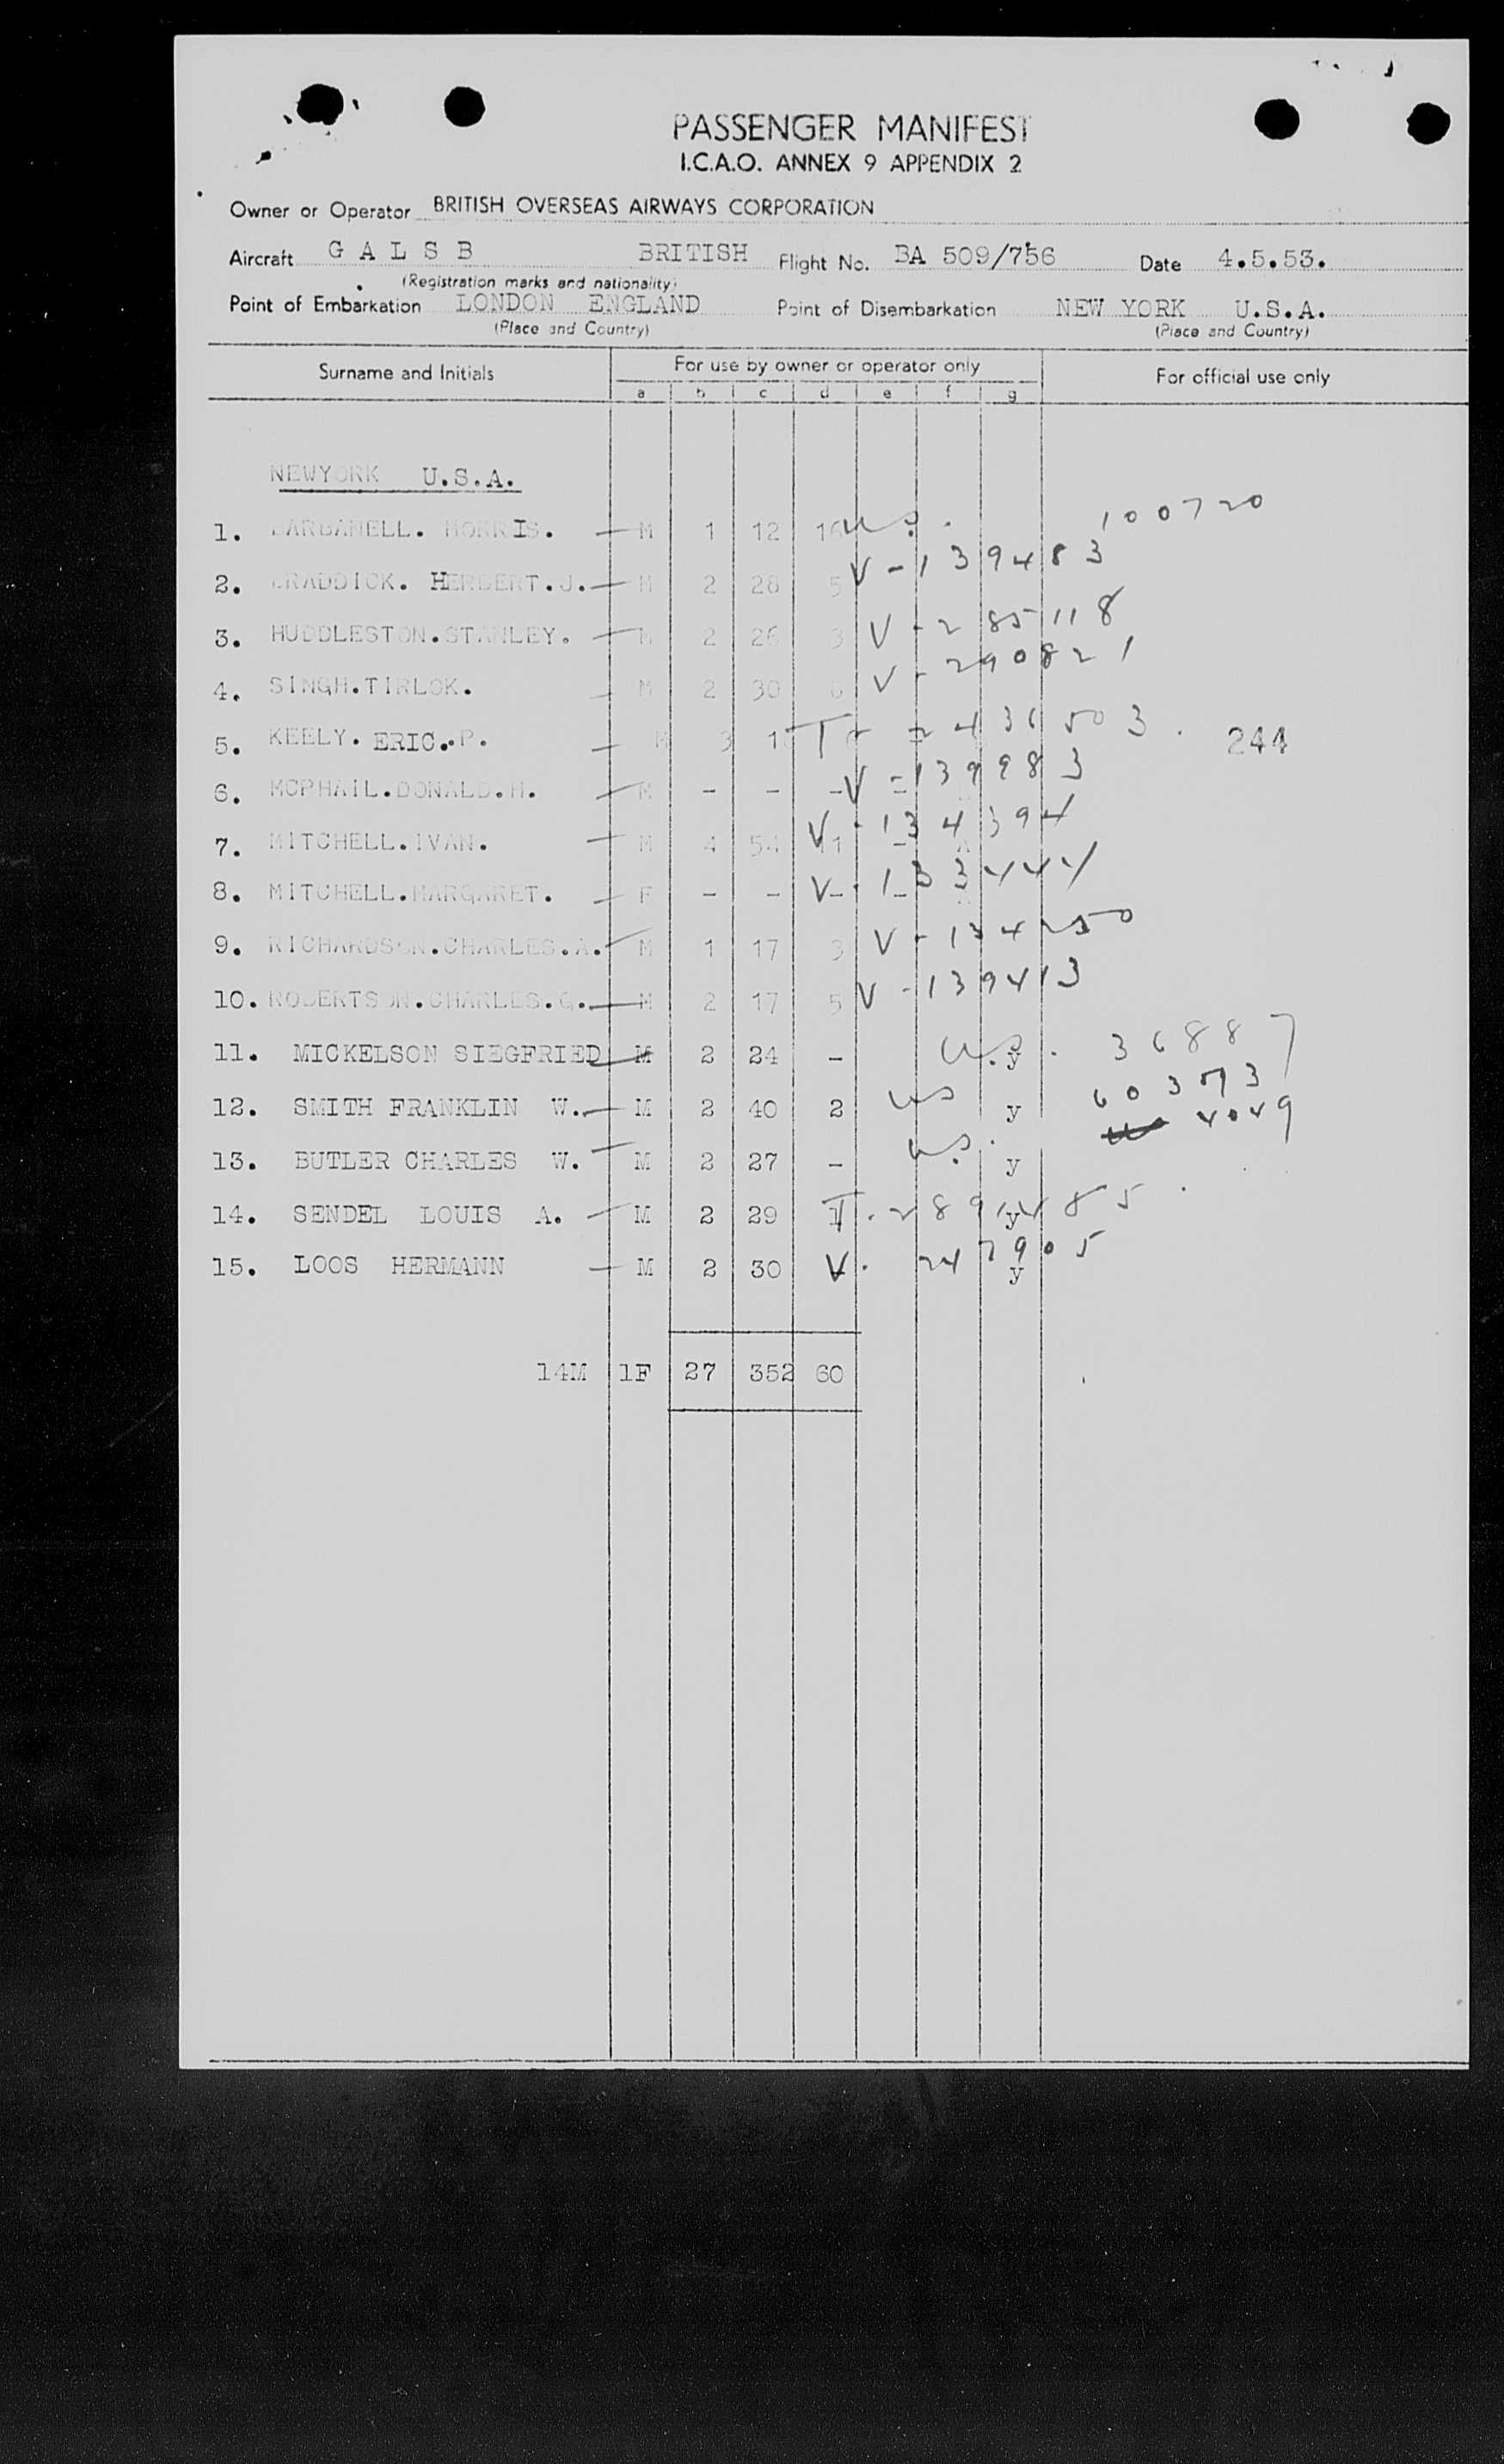 PASSENGER MANIFEST
I.C.A.O. ANNEX 9 APPENDIX 2
Owner or Operator BRITISH OVERSEAS AIRWAYS CORPORATION
Aircraft G A L S B BRITISH Flight No. BA 509/756 Date 4.5.53.
(Registration marks and nationality)
Point of Embarkation LONDON ENGLAND Point of Disembarkation NEW YORK U.S.A.
(Place and Country) (Place and Country)
Surname and Initials For use by owner or operator only For official use only
a b c d e f g
NEWYORK U.S.A.
1. BARBANELL. MORRIS. — M 1 12 16 us. 100720
2. CRADDICK. HERBERT.J. — M 2 28 5 V-139483
3. HUDDLESTON.STANLEY. — M 2 26 3 V-285118
4. SINGH.TIRLOK. — M 2 30 V-290821
5. KEELY. ERIC..P. — M 3 T- 503. 244
6. MCPHAIL.DONALD.H. — M - - - V-139983
7. MITCHELL.IVAN. — M 4 54 11 V-134394
8. MITCHELL.MARGARET. — F - - - V-133444
9. RICHARDSON.CHARLES.A. — M 1 17 3 V-134250
10. ROBERTSON.CHARLES.G. — M 2 17 5 V-139413
11. MICKELSON SIEGFRIED — M 2 24 - us. y 36887
12. SMITH FRANKLIN W. — M 2 40 2 us y 603573
13. BUTLER CHARLES W. — M 2 27 - us. y 4049
14. SENDEL LOUIS A. — M 2 29 T. y
15. LOOS HERMANN — M 2 30 V. 247905 y
14M 1F 27 352 60